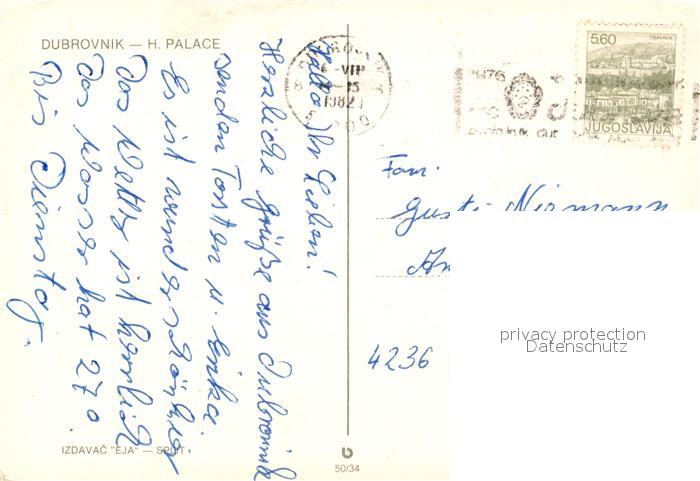 DUBROVNIK — H. PALACE
Hallo Ihr Lieben!
Herzliche Grüße aus Dubrovnik
senden Torsten u. Erika.
Es ist wunderschön hier
Das Wetter ist herrlich
Das Wasser hat 27°.
Bis Dienstag.
IZDAVAČ "EJA" — SPLIT
50/34
1982
1976
5.60
TRAVNIK
JUGOSLAVIJA
Fam.
Gusti Niemann
4236
privacy protection
Datenschutz